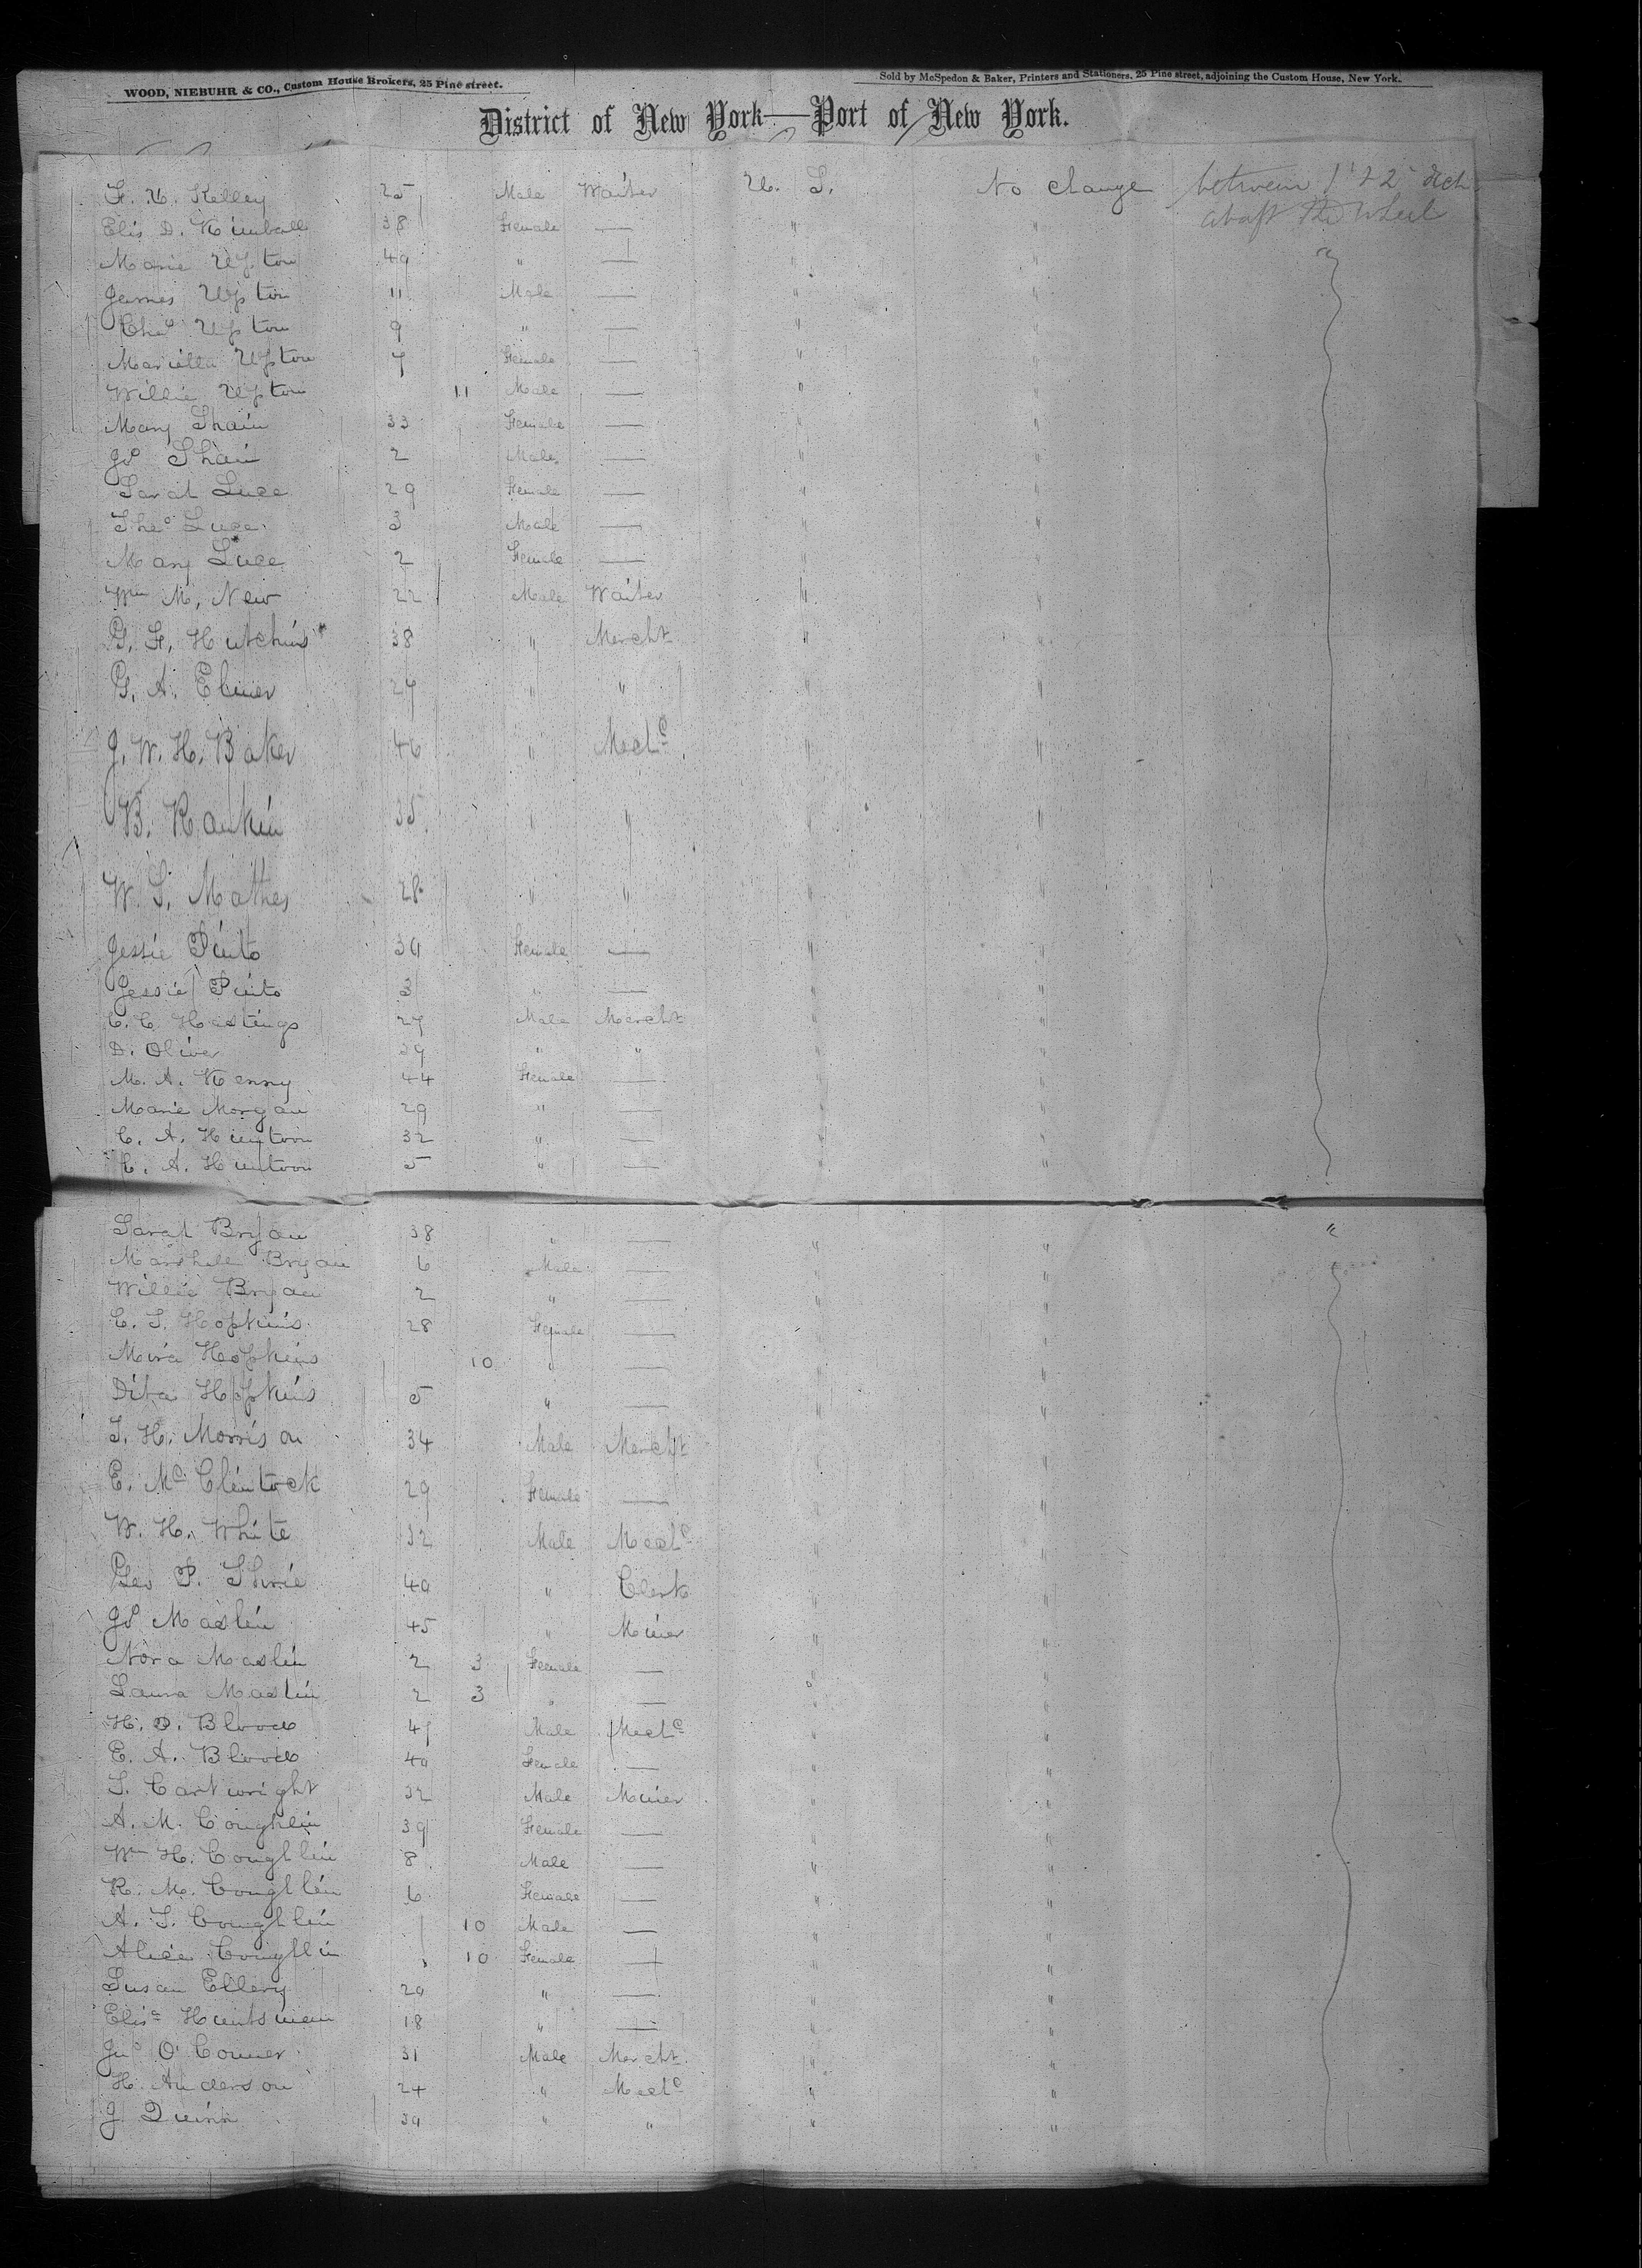 WOOD, NIEBUHR & CO., Custom House Brokers, 25 Pine street.
Sold by McSpedon & Baker, Printers and Stationers, 25 Pine street, adjoining the Custom House, New York.
District of New York—Port of New York.
F. U. Kelley 25 Male Waiter U. S. No change between 1st & 2d deck
abaft the Wheel
Elis D. Kimball 38 Female — " "
Marie Upton 49 " — " " "
James Upton 11 Male — " "
Chas Upton 9 " — " "
Mariella Upton 7 Female — " "
Willie Upton 11 Male — " "
Mary Shain 33 Female — " "
Jno Shain 2 Male — " "
Sarah Luce 29 Female — " "
Theo Luce 3 Male — " "
Mary Luce 2 Female — " "
Wm M. New 22 Male Waiter " "
G. F. Hutchins 38 " Mercht " "
G. A. Elmer 27 " " " "
J. W. H. Baker 46 " Mechc " "
B. Rankin 35 " " " "
W. S. Mathes 28 " " " "
Jessie Pinto 34 Female — " "
Jessie Pinto 3 " — " "
C. C. Hastings 27 Male Mercht " "
D. Oliver 39 " " " "
M. A. Kenny 44 Female — " "
Marie Morgan 29 " — " "
C. A. Huntoon 32 " — " "
C. A. Huntoon 5 " — " "
Sarah Bryan 38 " — " " "
Marshall Bryan 6 Male — " "
Willie Bryan 2 " — " "
C. S. Hopkins 28 Female — " "
Mira Hopkins 10 " — " "
Dita Hopkins 5 " — " "
S. H. Morrison 34 Male Mercht " "
E. McClintock 29 Female — " "
W. H. White 32 Male Mechc " "
Geo P. Shrie 40 " Clerk " "
Jno Maslin 45 " Miner " "
Nora Maslin 2 3 Female — " "
Laura Maslin 2 3 " — " "
H. D. Blood 47 Male Mechc " "
E. A. Blood 40 Female — " "
S. Cartwright 32 Male Miner " "
A. M. Coughlin 39 Female — " "
Wm H. Coughlin 8 Male — " "
R. M. Coughlin 6 Female — " "
A. S. Coughlin 10 Male — " "
Alice Coughlin 10 Female — " "
Susan Ellery 20 " — " "
Elisa Huntsman 18 " — " "
Jno O'Conner 31 Male Mercht " "
H. Anderson 24 " Mechc " "
J Quinn 30 " " " "